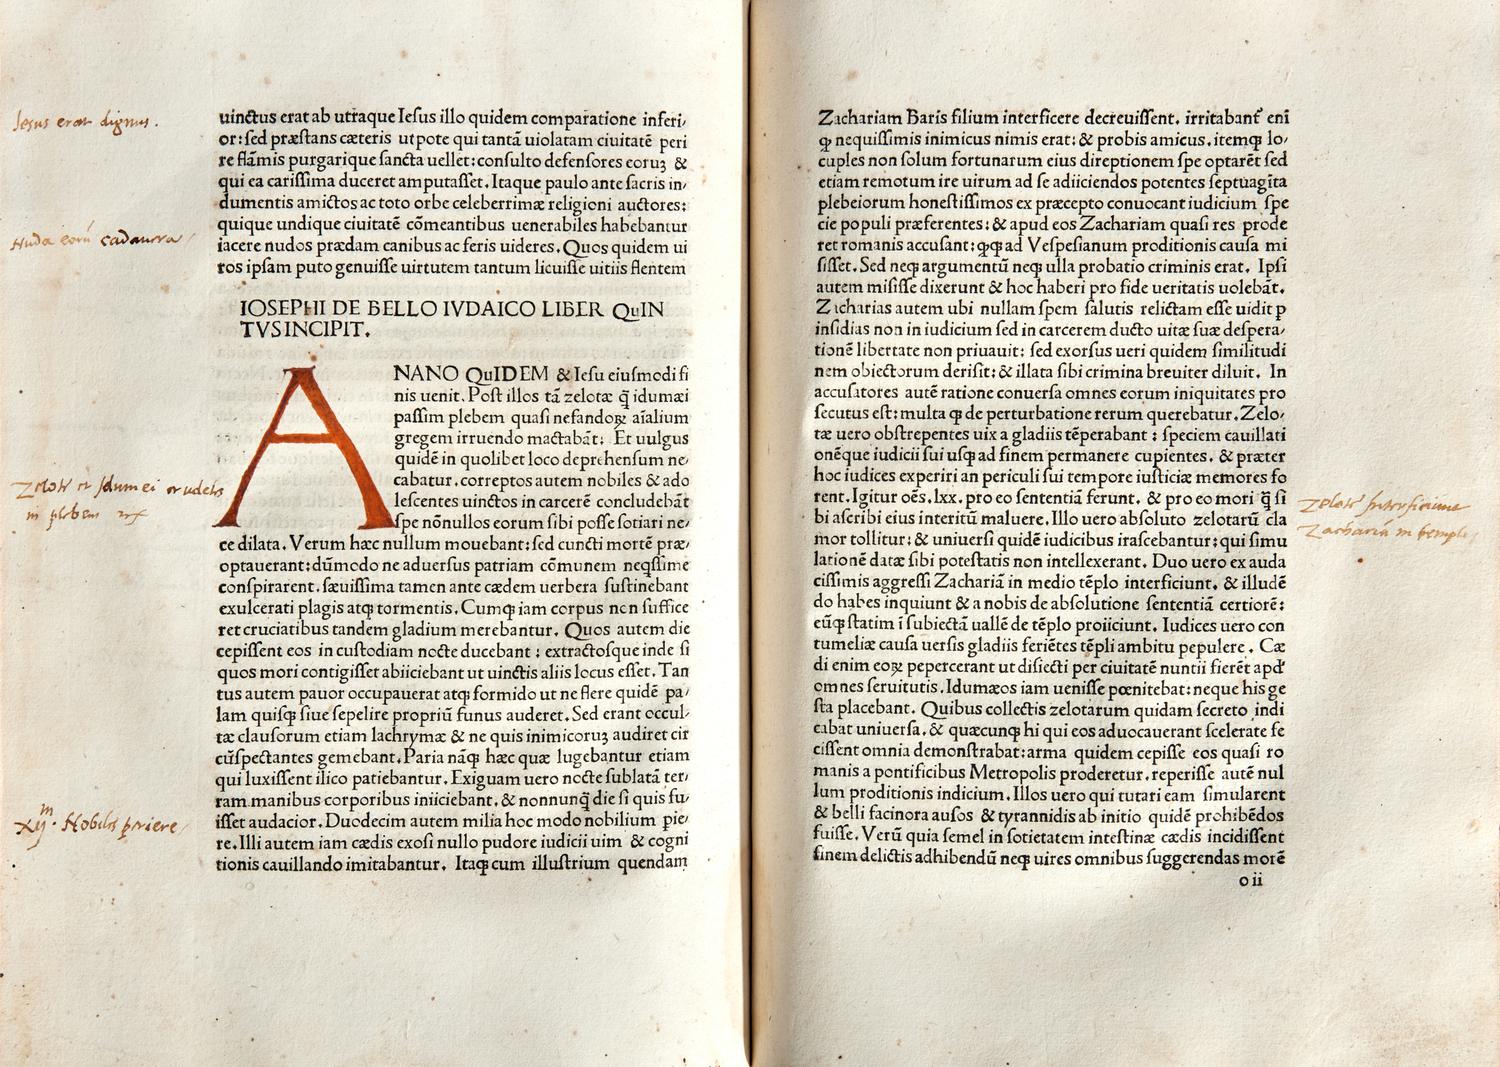 Iesus erat dignus.
uinctus erat ab utraque Iesus illo quidem comparatione inferi/
or: sed præstans cæteris utpote qui tantã uiolatam ciuitatẽ peri
re flãmis purgarique sancta uellet: consulto defensores eoruꝫ &
qui ea carissima duceret amputasset. Itaque paulo ante sacris in/
dumentis amictos ac toto orbe celeberrimæ religioni auctores:
quique undique ciuitatẽ cõmeantibus uenerabiles habebantur
Nuda eorũ cadauera
iacere nudos prædam canibus ac feris uideres. Quos quidem ui
ros ipsam puto genuisse uirtutem tantum licuisse uitiis flentem
IOSEPHI DE BELLO IVDAICO LIBER QuIN
TVS INCIPIT.
ANANO QuIDEM & Iesu eiusmodi fi
nis uenit. Post illos tã zelotæ q̃ idumæi
passim plebem quasi nefandoꝝ aĩalium
gregem irruendo mactabãt: Et uulgus
quidẽ in quolibet loco deprehensum ne/
cabatur. correptos autem nobiles & ado
Zelotæ et Idumei crudeles
lescentes uinctos in carcerẽ concludebãt
in plebem
spe nõnullos eorum sibi posse sotiari ne/
ce dilata. Verum hæc nullum mouebant: sed cuncti mortẽ præ/
optauerant: dũmodo ne aduersus patriam cõmunem neqssime
conspirarent. sæuissima tamen ante cædem uerbera sustinebant
exulcerati plagis atqꝫ tormentis. Cumqꝫ iam corpus non suffice
ret cruciatibus tandem gladium merebantur. Quos autem die
cepissent eos in custodiam nocte ducebant: extractosque inde si
quos mori contigisset abiiciebant ut uinctis aliis locus esset. Tan
tus autem pauor occupauerat atqꝫ formido ut ne flere quidẽ pa/
lam quisqꝫ siue sepelire propriũ funus auderet. Sed erant occul/
tæ clausorum etiam lachrymæ & ne quis inimicoruꝫ audiret cir
cũspectantes gemebant. Paria nãqꝫ hæc quæ lugebantur etiam
qui luxissent ilico patiebantur. Exiguam uero nocte sublatã ter/
ram manibus corporibus iniiciebant. & nonnunq̃ die si quis fu/
XII m. Nobiles periere
isset audacior. Duodecim autem milia hoc modo nobilium pie/
re. Illi autem iam cædis exosi nullo pudore iudicii uim & cogni
tionis cauillando imitabantur. Itaqꝫ cum illustrium quendam
Zachariam Baris filium interficere decreuissent. irritabant̃ enĩ
qꝫ nequissimis inimicus nimis erat: & probis amicus. itemqꝫ lo/
cuples non solum fortunarum eius direptionem spe optarẽt sed
etiam remotum ire uirum ad se adiiciendos potentes septuagĩta
plebeiorum honestissimos ex præcepto conuocant iudicium spe
cie populi præferentes: & apud eos Zachariam quasi res prode
ret romanis accusant: ꝙqꝫ ad Vespesianum proditionis causa mi
sisset. Sed neqꝫ argumentũ neqꝫ ulla probatio criminis erat. Ipsi
autem misisse dixerunt & hoc haberi pro fide ueritatis uolebãt.
Zacharias autem ubi nullam spem salutis relictam esse uidit ꝑ
insidias non in iudicium sed in carcerem ducto uitæ suæ despera/
tionẽ libertate non priuauit: sed exorsus ueri quidem similitudi
nem obiectorum derisit: & illata sibi crimina breuiter diluit. In
accusatores autẽ ratione conuersa omnes eorum iniquitates pro
secutus est: multa qꝫ de perturbatione rerum querebatur. Zelo/
tæ uero obstrepentes uix a gladiis tẽperabant: speciem cauillati
onẽque iudicii sui usqꝫ ad finem permanere cupientes. & præter
hoc iudices experiri an periculi sui tempore iusticiæ memores fo
Zelotæ interficiunt
rent. Igitur oẽs .lxx. pro eo sententiã ferunt. & pro eo mori q̃ si
Zachariã in templo
bi ascribi eius interitũ maluere. Illo uero absoluto zelotarũ cla
mor tollitur: & uniuersi quidẽ iudicibus irascebantur: qui simu
lationẽ datæ sibi potestatis non intellexerant. Duo uero ex auda
cissimis aggressi Zachariã in medio tẽplo interficiunt. & illudẽ
do habes inquiunt & a nobis de absolutione sententiã certiorẽ:
eũqꝫ statim ĩ subiectã uallẽ de tẽplo proiiciunt. Iudices uero con
tumeliæ causa uersis gladiis feriẽtes tẽpli ambitu pepulere. Cæ
di enim eoꝝ pepercerant ut disiecti per ciuitatẽ nuntii fierẽt apd'
omnes seruitutis. Idumæos iam uenisse pœnitebat: neque his ge
sta placebant. Quibus collectis zelotarum quidam secreto indi
cabat uniuersa. & quæcunqꝫ hi qui eos aduocauerant scelerate fe
cissent omnia demonstrabat: arma quidem cepisse eos quasi ro
manis a pontificibus Metropolis proderetur. reperisse autẽ nul
lum proditionis indicium. Illos uero qui tutari eam simularent
& belli facinora ausos & tyrannidis ab initio quidẽ prohibẽdos
fuisse. Verũ quia semel in sotietatem intestinæ cædis incidissent
finem delictis adhibendũ neqꝫ uires omnibus suggerendas morẽ
o ii